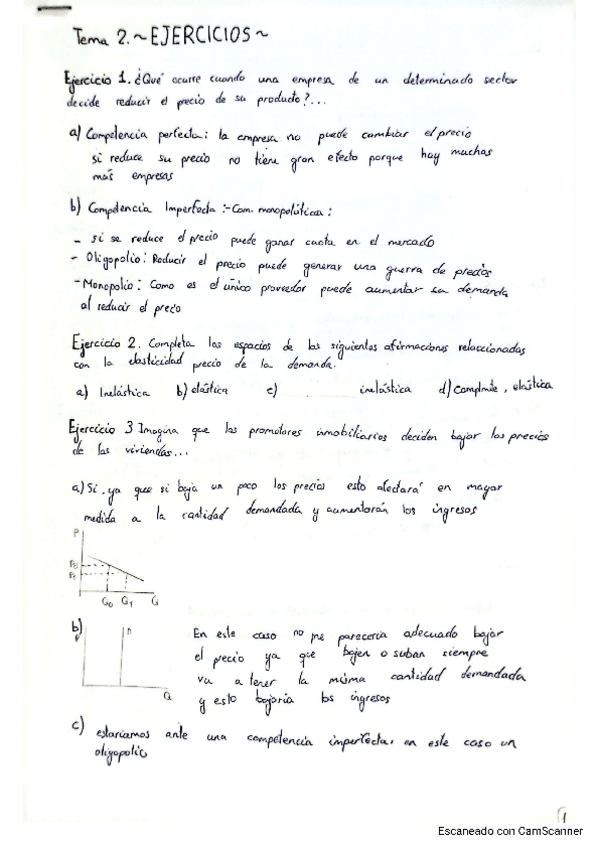 Tema 2. ~ EJERCICIOS ~
Ejercicio 1. ¿Qué ocurre cuando una empresa de un determinado sector
decide reducir el precio de su producto?...
a) Competencia perfecta: la empresa no puede cambiar el precio
si reduce su precio no tiene gran efecto porque hay muchas
más empresas
b) Competencia Imperfecta :- Com. monopolística:
- si se reduce el precio puede ganar cuota en el mercado
- Oligopolio: Reducir el precio puede generar una guerra de precios
- Monopolio: Como es el único proveedor puede aumentar su demanda
al reducir el precio
Ejercicio 2. Completa los espacios de las siguientes afirmaciones relaccionadas
con la elasticidad precio de la demanda.
a) Inelástica b) elástica c) inelástica d) , elástica
Ejercicio 3 Imagina que los promotores inmobiliarios deciden bajar los precios
de las viviendas...
a) Si, ya que si baja un poco los precios esto afectará en mayor
medida a la cantidad demandada y aumentarán los ingresos
P
P0
P1
Q0 Q1 Q
b)
P
D
Q
En este caso no me parecería adecuado bajar
el precio ya que bajen o suban siempre
va a tener la misma cantidad demandada
y esto bajaría los ingresos
c) estaríamos ante una competencia imperfecta, en este caso un
oligopolio
1
Escaneado con CamScanner